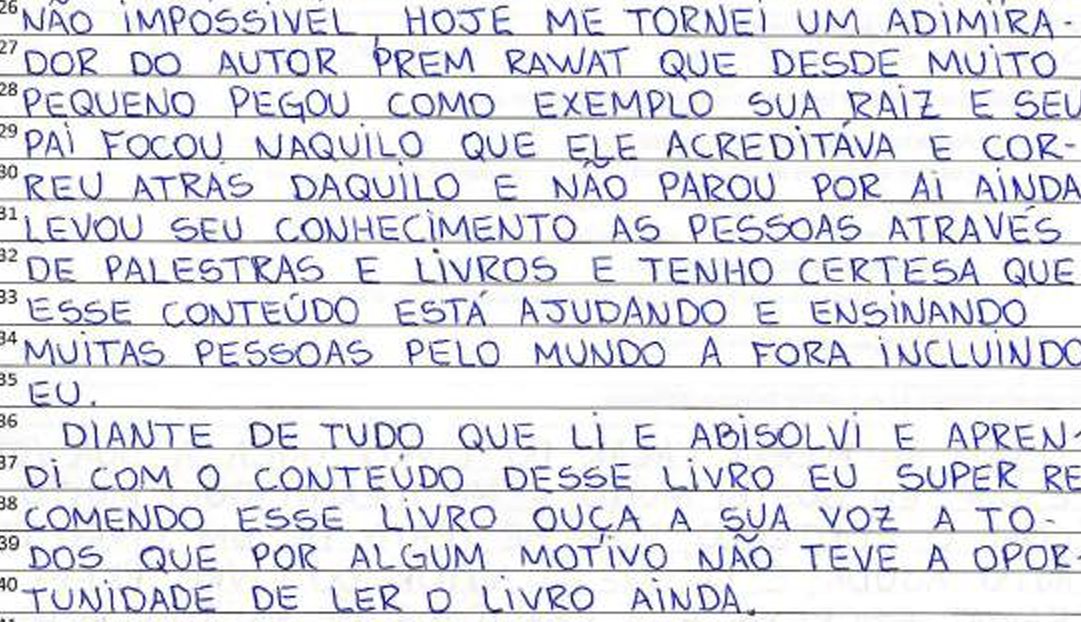 26 NÃO IMPOSSIVEL HOJE ME TORNEI UM ADIMIRA-
27 DOR DO AUTOR PREM RAWAT QUE DESDE MUITO
28 PEQUENO PEGOU COMO EXEMPLO SUA RAIZ E SEU
29 PAI FOCOU NAQUILO QUE ELE ACREDITÁVA E COR-
30 REU ATRÁS DAQUILO E NÃO PAROU POR AI AINDA
31 LEVOU SEU CONHECIMENTO AS PESSOAS ATRAVÉS
32 DE PALESTRAS E LIVROS E TENHO CERTESA QUE
33 ESSE CONTEÚDO ESTÁ AJUDANDO E ENSINANDO
34 MUITAS PESSOAS PELO MUNDO A FORA INCLUINDO
35 EU.
36 DIANTE DE TUDO QUE LI E ABISOLVI E APREN-
37 DI COM O CONTEÚDO DESSE LIVRO EU SUPER RE
38 COMENDO ESSE LIVRO OUÇA A SUA VOZ A TO-
39 DOS QUE POR ALGUM MOTIVO NÃO TEVE A OPOR-
40 TUNIDADE DE LER O LIVRO AINDA.